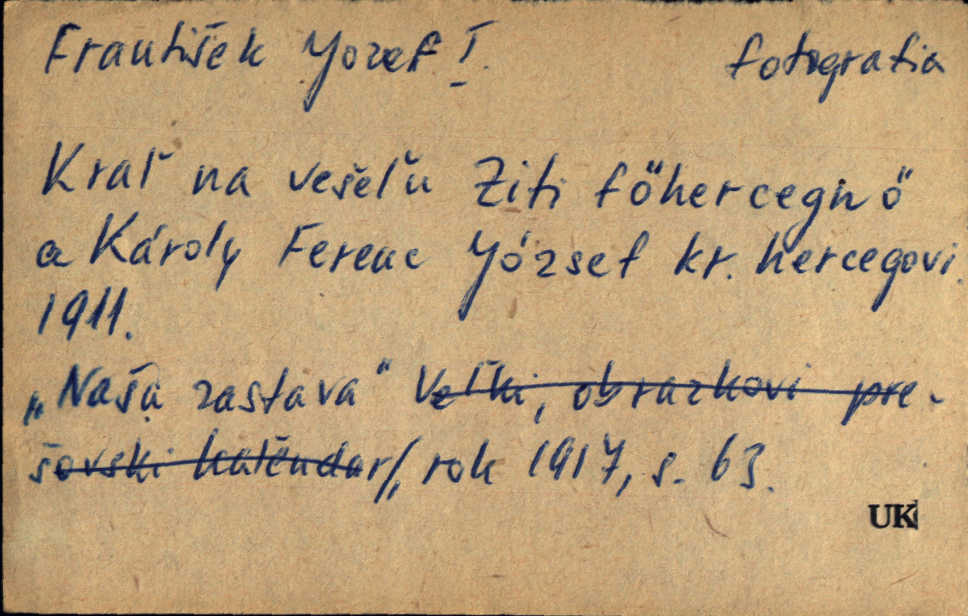 František Jozef I. fotografia
Kraľ na vešeľu Ziti főhercegnő
a Károly Ferenc József kr. hercegovi
1911.
„Naša zastava" Veľki, obrazkovi pre-
šovski kaľendar/, rok 1917, s. 63.
UK